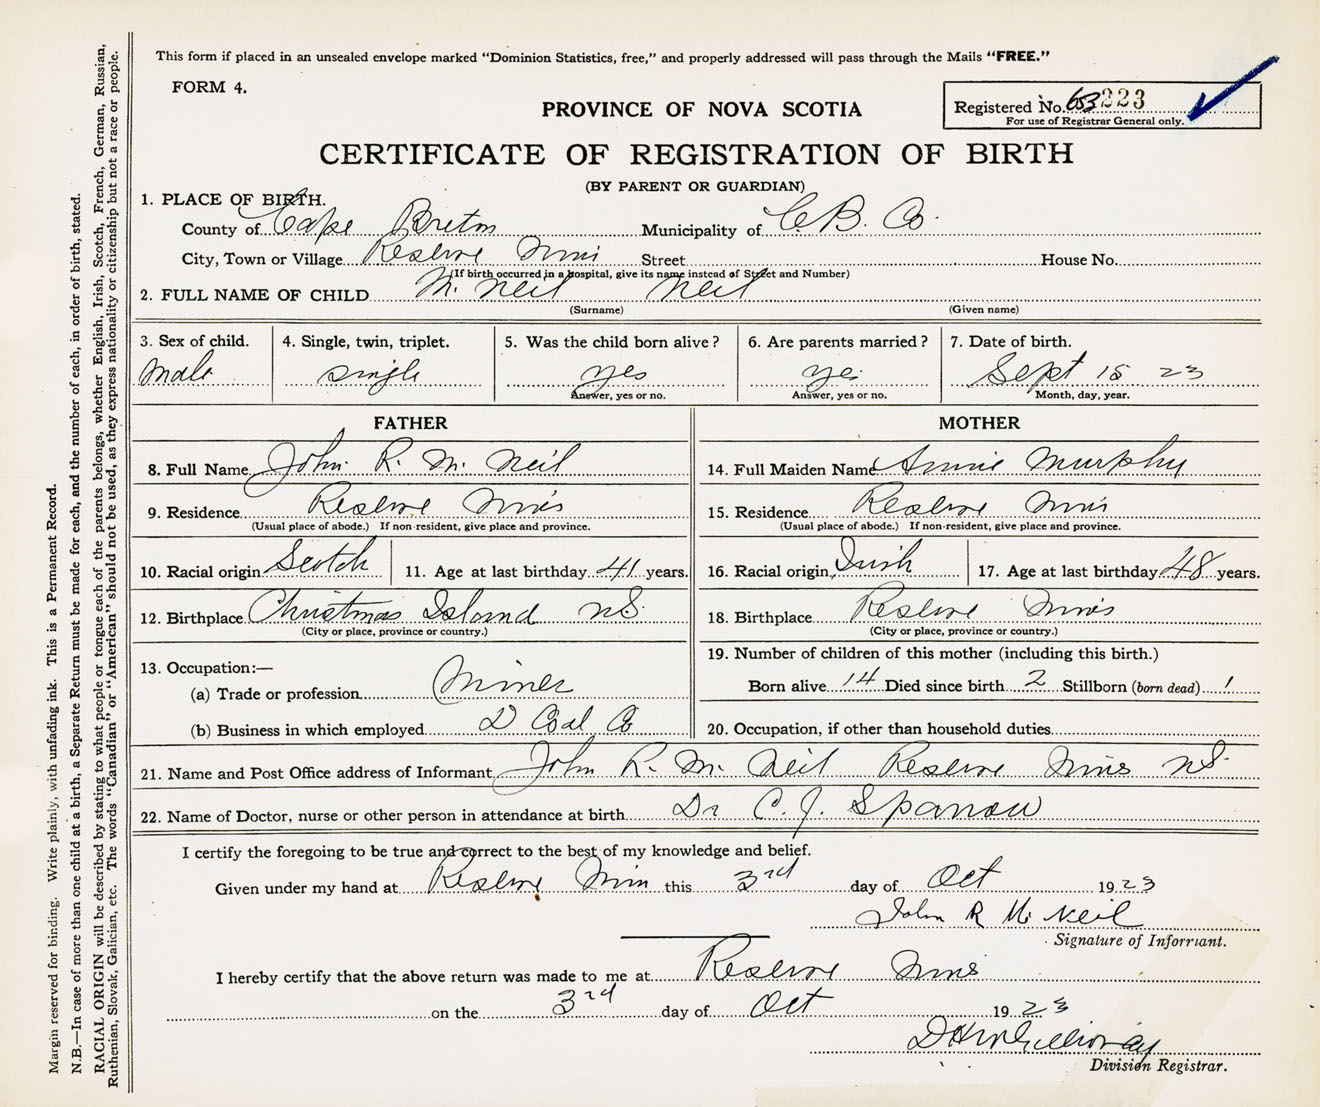 This form if placed in an unsealed envelope marked “Dominion Statistics, free,” and properly addressed will pass through the Mails “FREE.”
FORM 4.
Registered No. 653223
For use of Registrar General only.
PROVINCE OF NOVA SCOTIA
CERTIFICATE OF REGISTRATION OF BIRTH
(BY PARENT OR GUARDIAN)
1. PLACE OF BIRTH.
County of Cape Breton Municipality of C.B. Co.
City, Town or Village Reserve Mines Street House No.
(If birth occurred in a hospital, give its name instead of Street and Number)
2. FULL NAME OF CHILD Mc Neil Neil
(Surname) (Given name)
3. Sex of child. 4. Single, twin, triplet. 5. Was the child born alive? 6. Are parents married? 7. Date of birth.
Male single yes yes Sept 15 23
Answer, yes or no. Answer, yes or no. Month, day, year.
FATHER MOTHER
8. Full Name John R. Mc Neil 14. Full Maiden Name Annie Murphy
9. Residence Reserve Mines 15. Residence Reserve Mines
(Usual place of abode.) If non-resident, give place and province. (Usual place of abode.) If non-resident, give place and province.
10. Racial origin Scotch 11. Age at last birthday 41 years. 16. Racial origin Irish 17. Age at last birthday 48 years.
12. Birthplace Christmas Island NS. 18. Birthplace Reserve Mines
(City or place, province or country.) (City or place, province or country.)
13. Occupation:— 19. Number of children of this mother (including this birth.)
(a) Trade or profession Miner Born alive 14 Died since birth 2 Stillborn (born dead) 1
(b) Business in which employed D Coal Co 20. Occupation, if other than household duties
21. Name and Post Office address of Informant John R. Mc Neil Reserve Mines NS.
22. Name of Doctor, nurse or other person in attendance at birth Dr C. J. Sparrow
I certify the foregoing to be true and correct to the best of my knowledge and belief.
Given under my hand at Reserve Mines this 3rd day of Oct 1923
John R Mc Neil
Signature of Informant.
I hereby certify that the above return was made to me at Reserve Mines
on the 3rd day of Oct 1923
Division Registrar.
Margin reserved for binding. Write plainly, with unfading ink. This is a Permanent Record.
N.B.—In case of more than one child at a birth, a Separate Return must be made for each, and the number of each, in order of birth, stated.
RACIAL ORIGIN will be described by stating to what people or tongue each of the parents belongs, whether English, Irish, Scotch, French, German, Russian,
Ruthenian, Slovak, Galician, etc. The words “Canadian” or “American” should not be used, as they express nationality or citizenship but not a race or people.